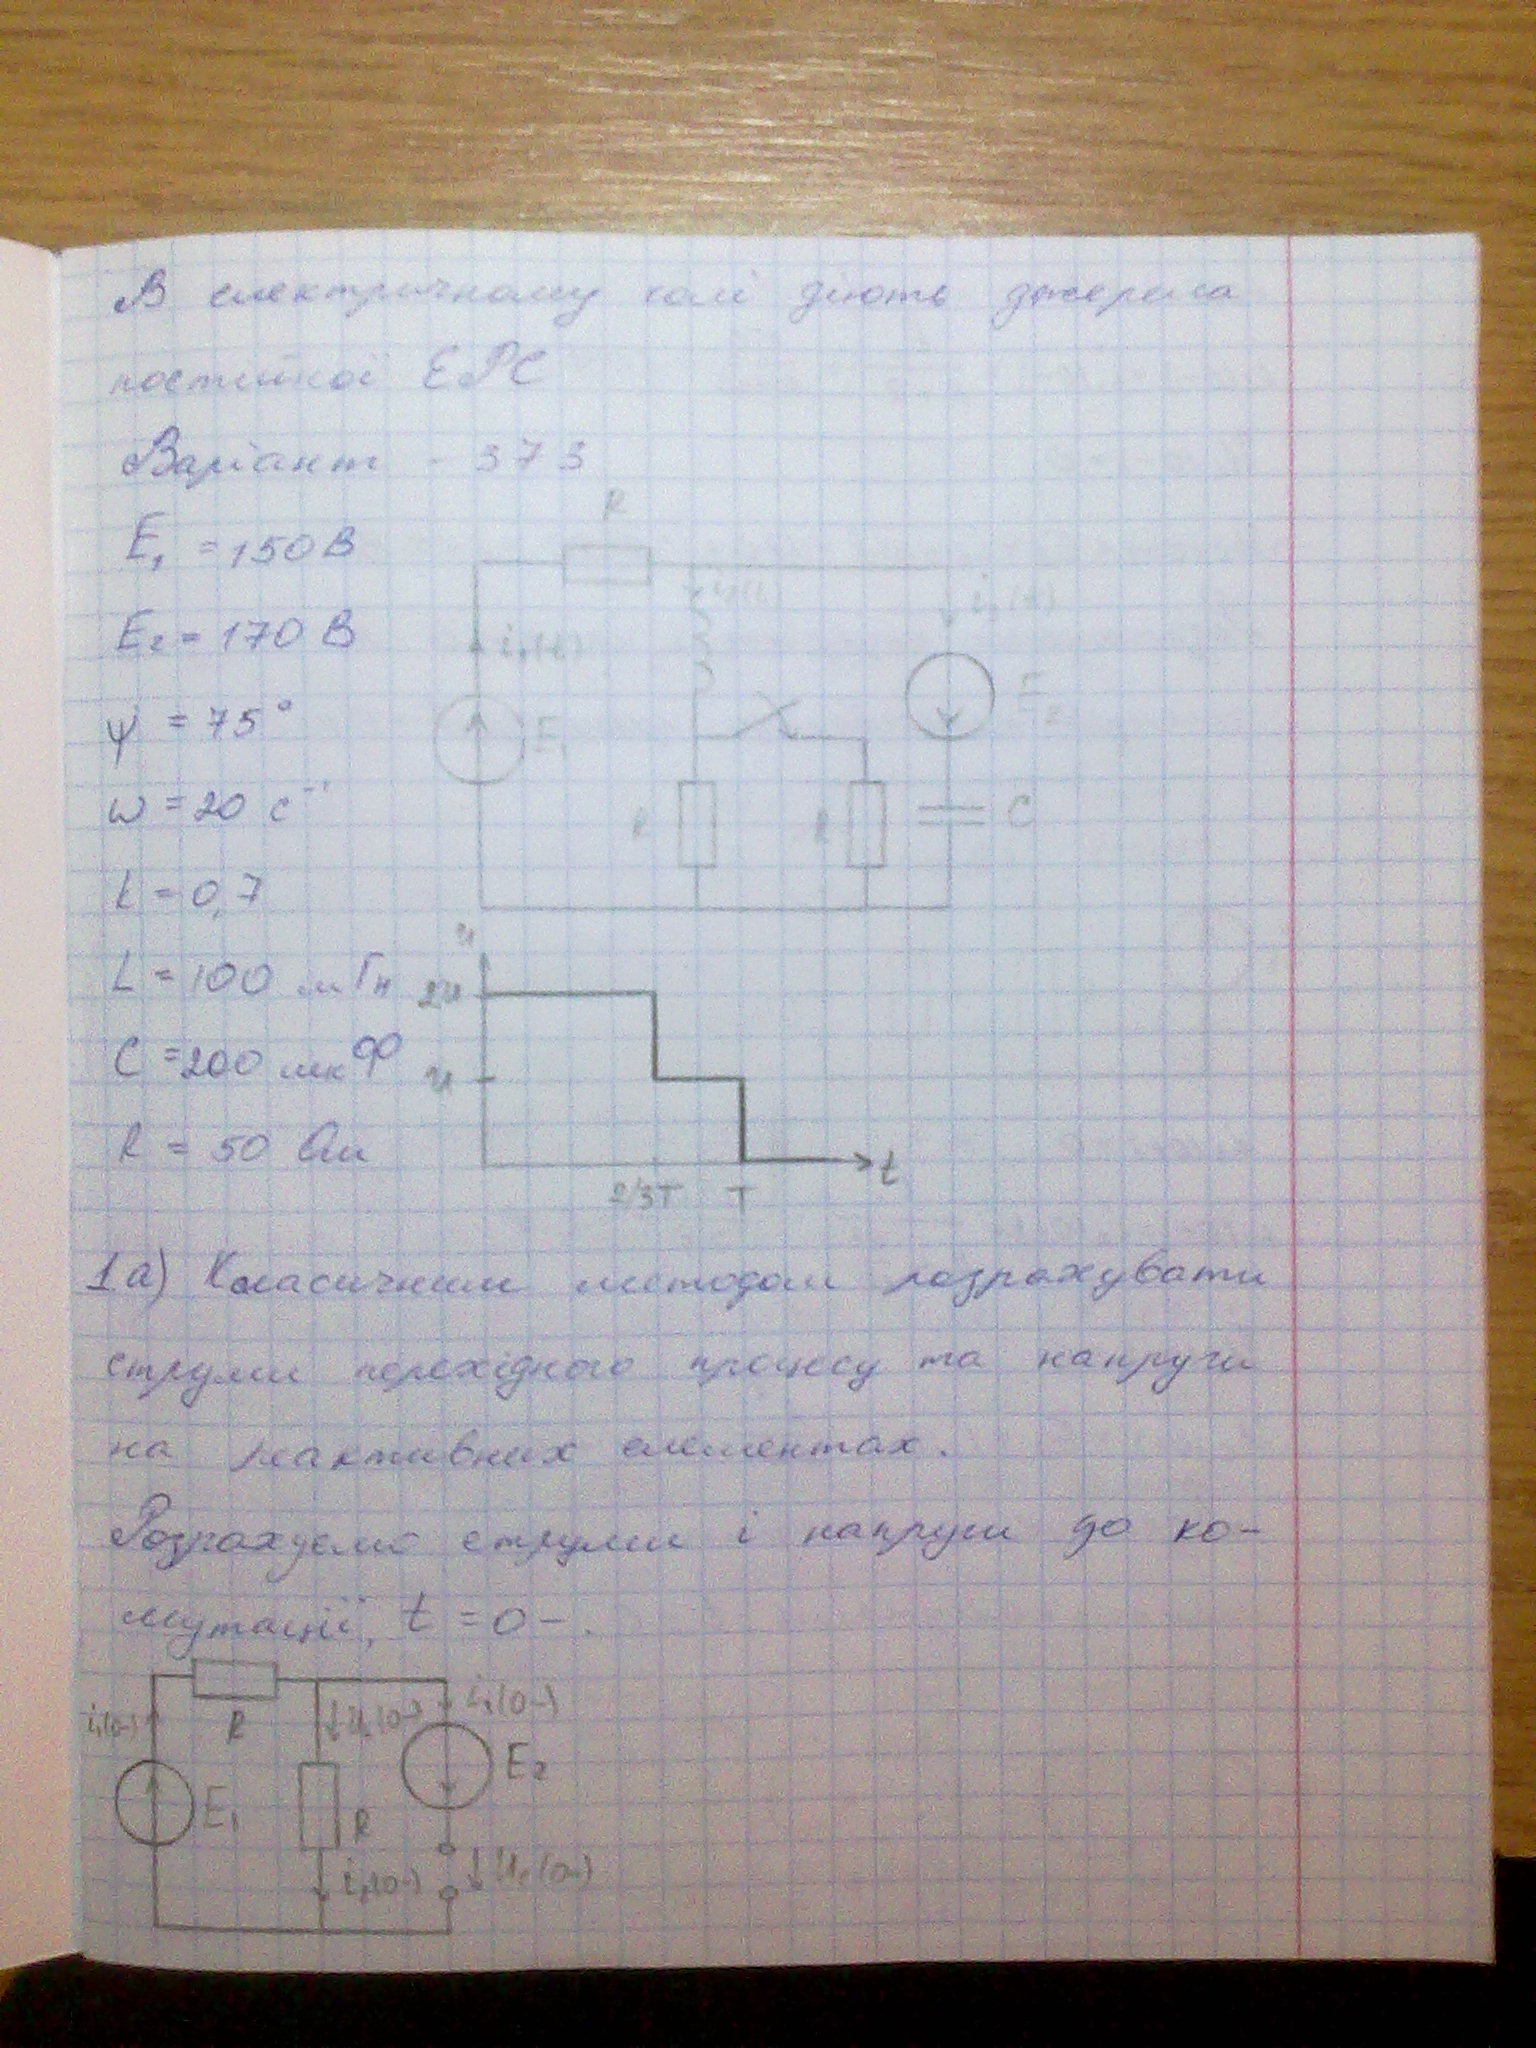 В електричному колі діють джерела
постійної ЕРС
Варіант - 373
E₁ = 150 В
E₂ = 170 В
ψ = 75°
ω = 20 с⁻¹
L = 0,7
L = 100 мГн
C = 200 мкФ
R = 50 Ом
R
i₁(t)
E₁
i₃(t)
E₂
R
R
C
u
2u
u
2/3T
T
t
1а) Класичним методом розрахувати
струми перехідного процесу та напруги
на реактивних елементах.
Розрахуємо струми і напруги до ко-
мутації, t = 0-.
i₁(0-)
R
E₁
R
E₂
Uc(0-)